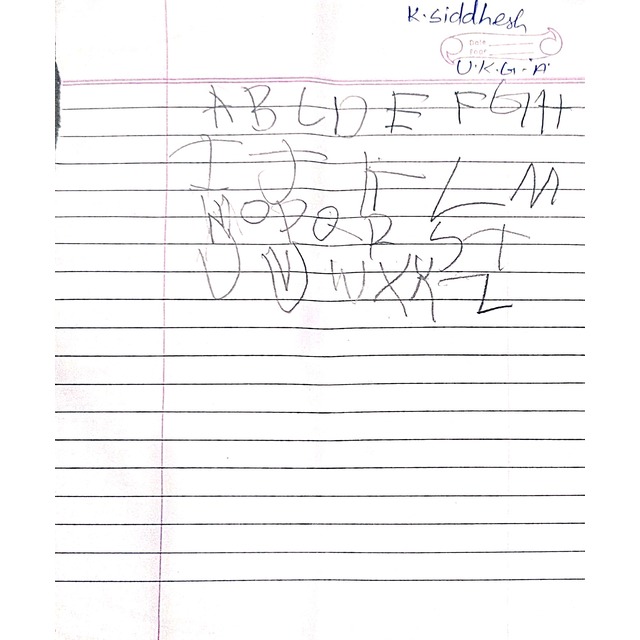 K. Siddhesh
Date
Page
U.K.G-'A'
A B C D E F G H
I J K L M
N O P Q R S T
U V W X Y Z